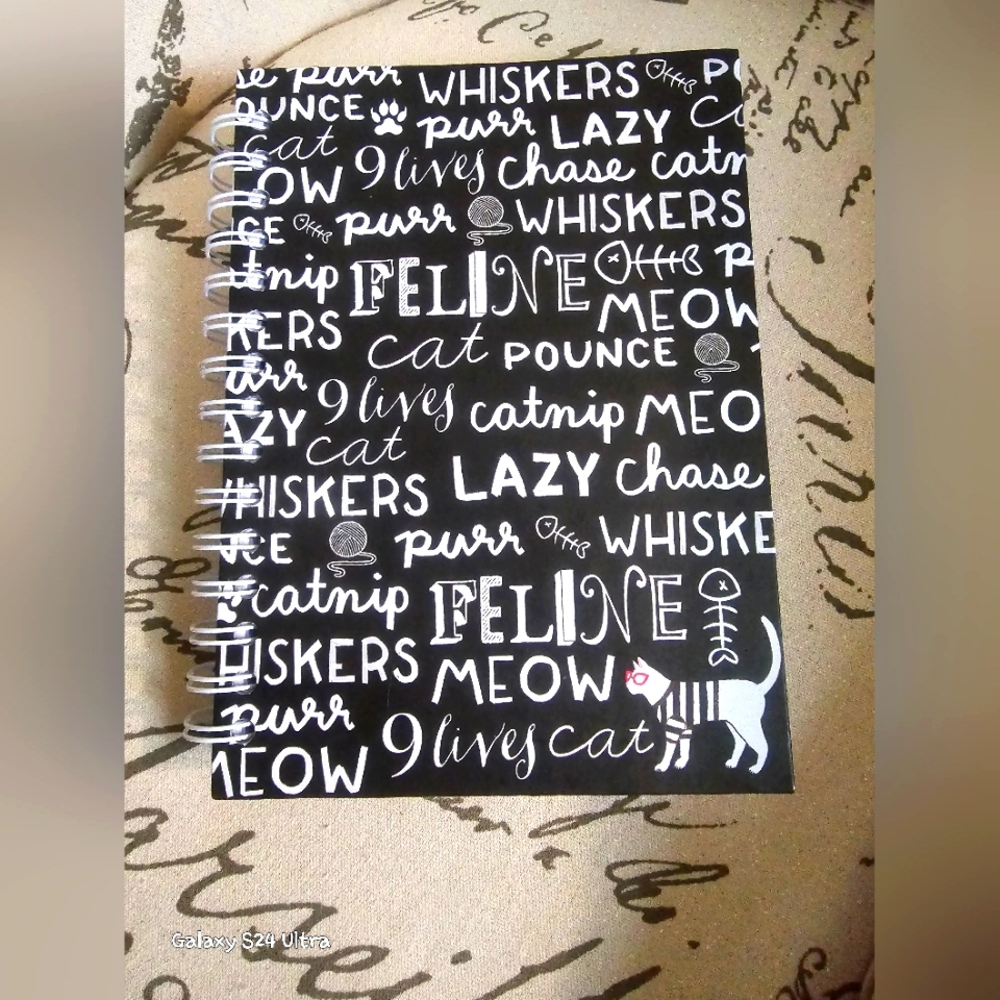 purr WHISKERS
OUNCE purr LAZY
cat 9 lives chase catn
OW
CE purr WHISKERS
tnip FELINE
KERS MEOW
cat POUNCE
urr 9 lives catnip MEO
AZY cat LAZY chase
HISKERS
NCE purr WHISKE
catnip FELINE
HISKERS MEOW
purr 9 lives cat
MEOW
Galaxy S24 Ultra